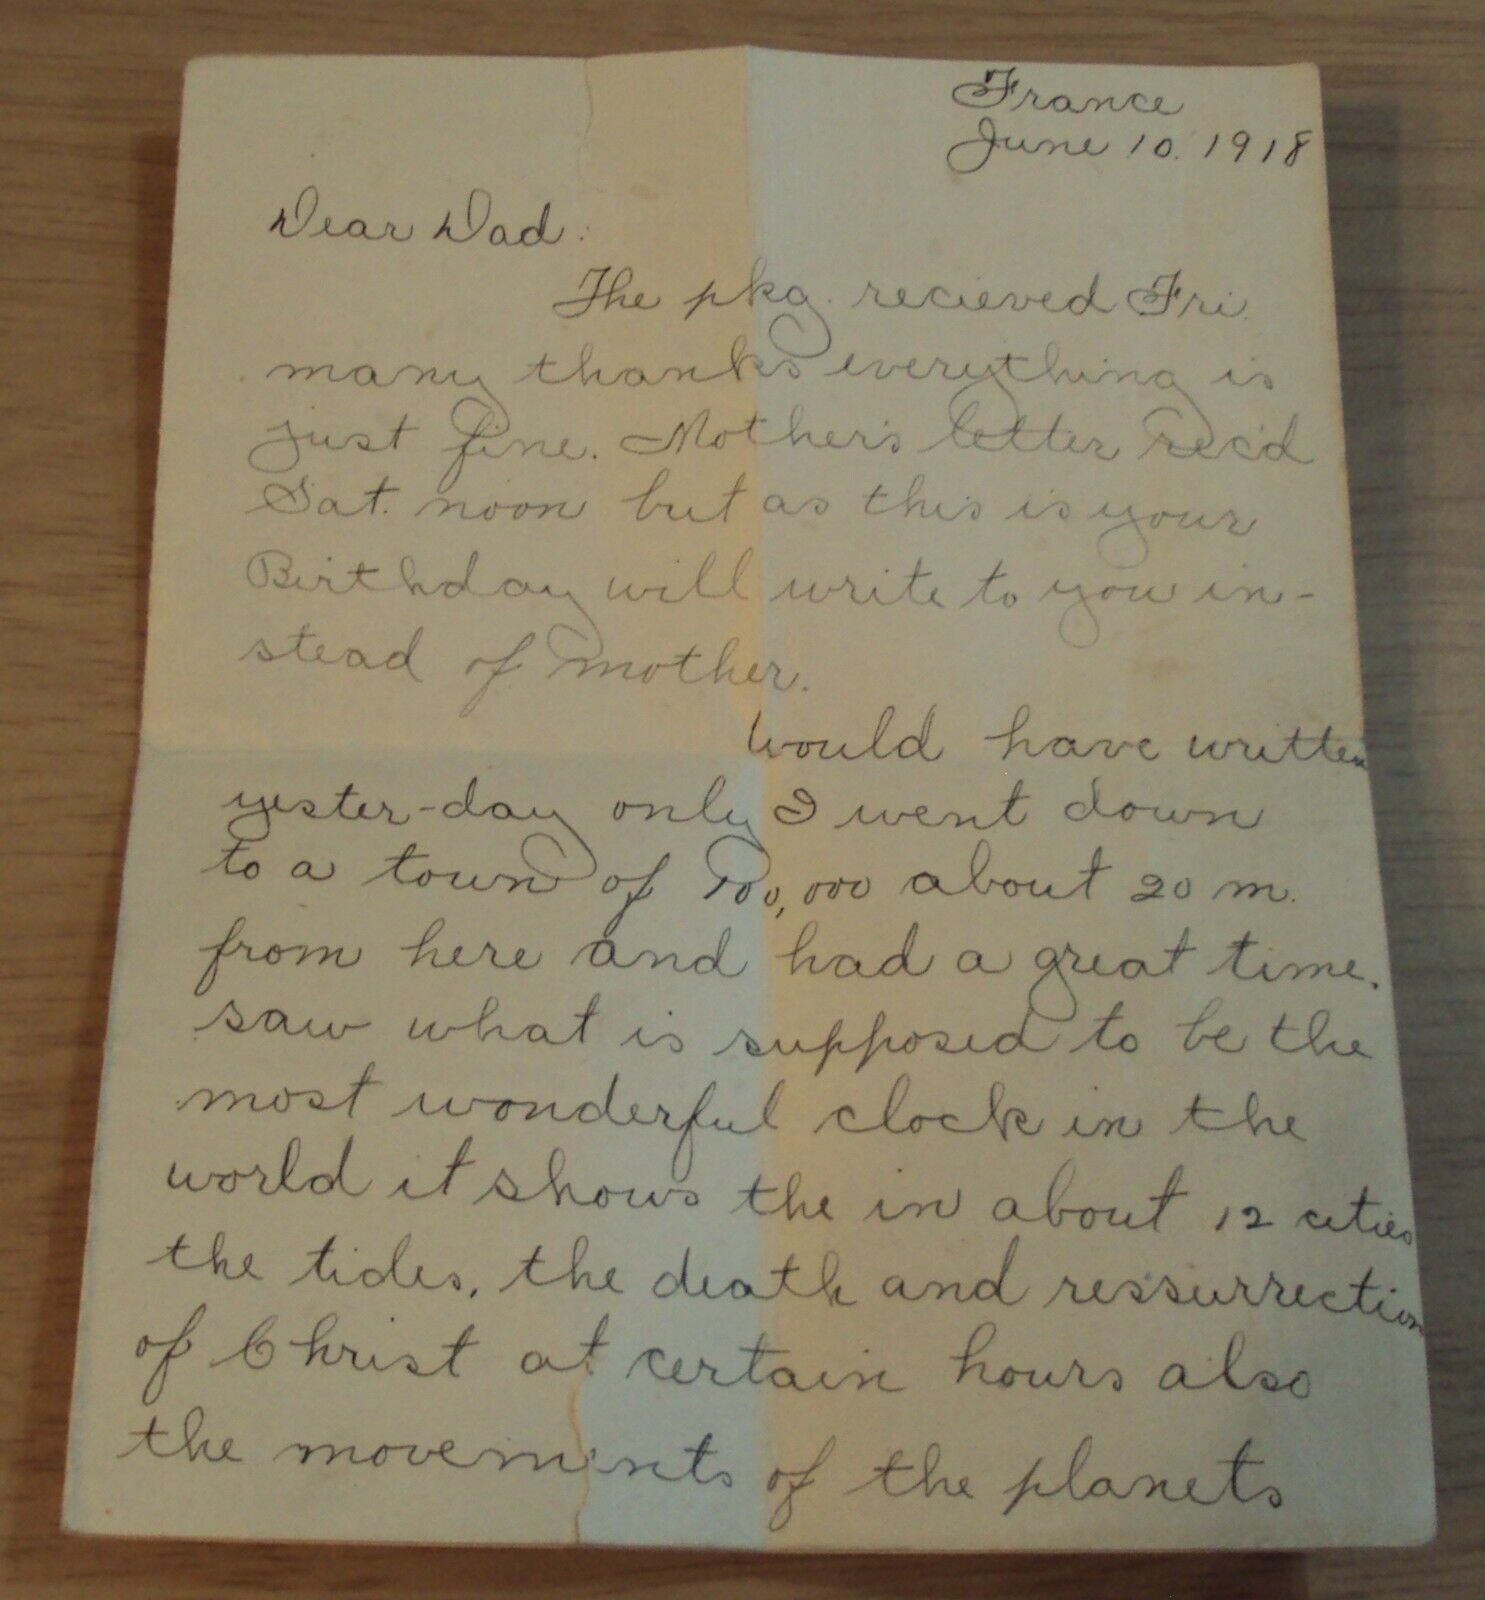 France
June 10. 1918
Dear Dad:
The pkg. recieved Fri.
many thanks everything is
just fine. Mother's letter rec'd
Sat. noon but as this is your
Birthday will write to you in-
stead of mother.
Would have written
yester-day only I went down
to a town of 100,000 about 20 m.
from here and had a great time.
saw what is supposed to be the
most wonderful clock in the
world it shows the in about 12 cities
the tides, the death and ressurrection
of Christ at certain hours also
the movements of the planets